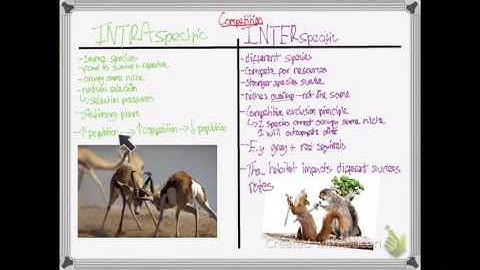 Competition
INTRAspecific
- Same species
- occupy same niche
- natural selection
↳ selection pressures
- Stationary phase
↑ population → ↑ competition → ↓ population
INTERspecific
- different species
- Compete for resources
- Stronger species survive
- niches overlap - not the same
- Competitive exclusion principle
↳ 2 species cannot occupy same niche
1 will outcompete other
- E.g grey + red squirrels
- The habitat impacts different success
rates